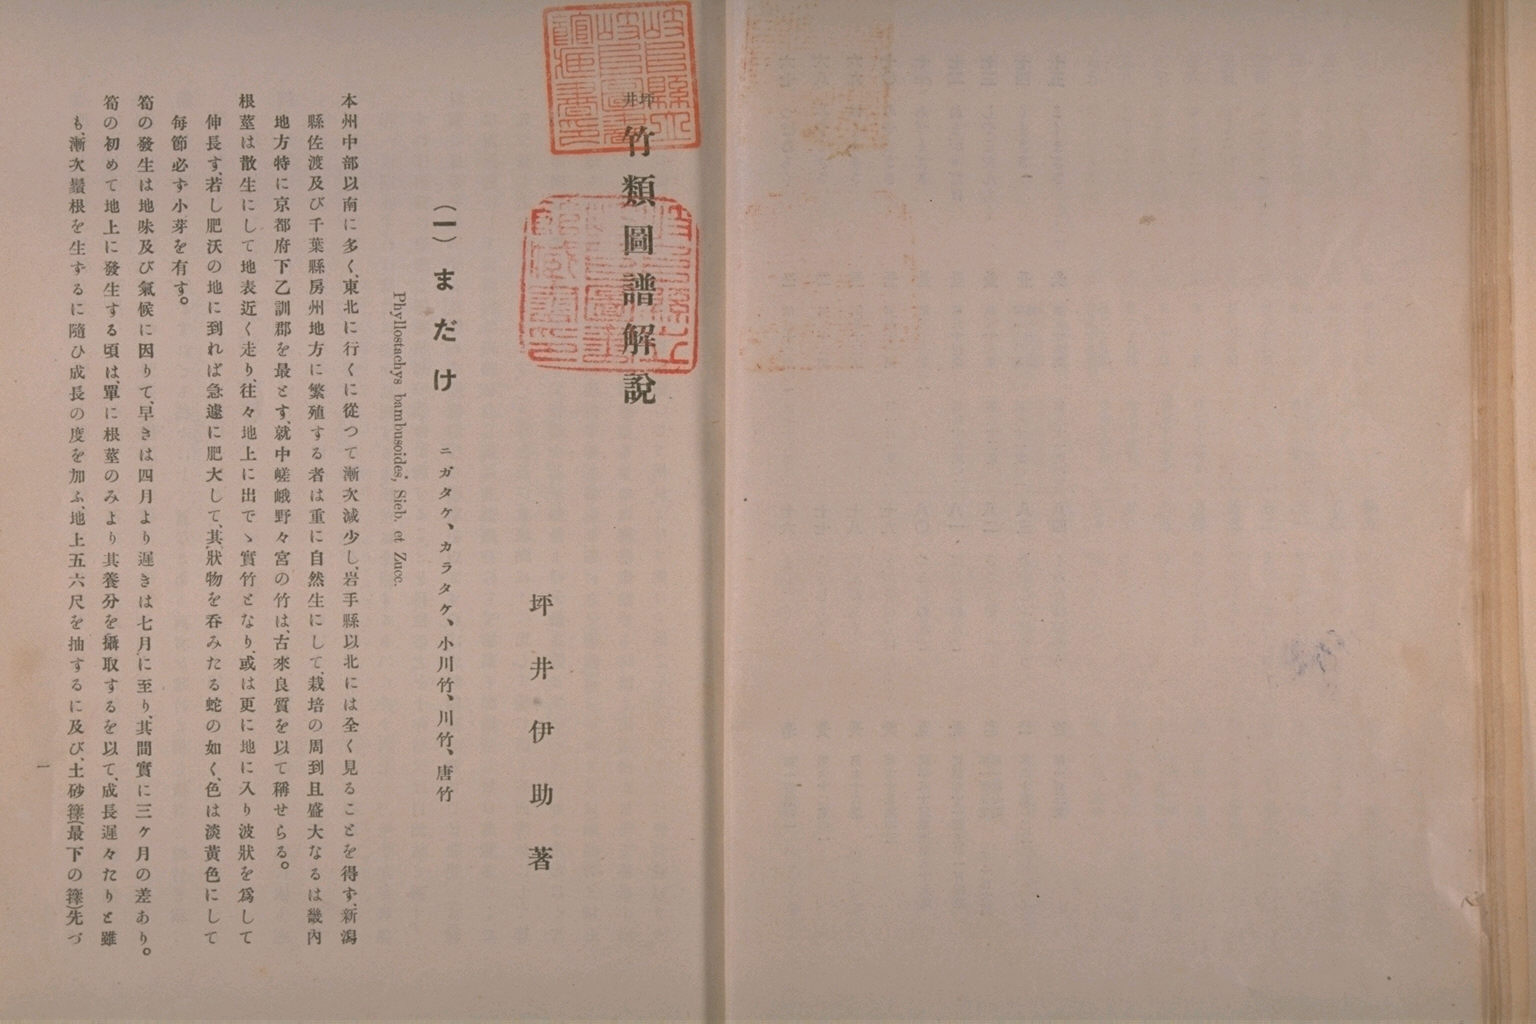 坪井 竹類圖譜解說
坪井伊助著
(一)まだけ ニガタケ、カラタケ、小川竹、川竹、唐竹
Phyllostachys bambusoides, Sieb. et Zucc.
本州中部以南に多く、東北に行くに從つて漸次減少し、岩手縣以北には全く見ることを得ず、新潟
縣佐渡及び千葉縣房州地方に繁殖する者は重に自然生にして、栽培の周到且盛大なるは畿內
地方特に京都府下乙訓郡を最とす、就中嵯峨野々宮の竹は、古來良質を以て稱せらる。
根莖は散生にして地表近く走り、往々地上に出でゝ實竹となり、或は更に地に入り波狀を爲して
伸長す、若し肥沃の地に到れば急遽に肥大して、其狀物を呑みたる蛇の如く、色は淡黃色にして
每節必ず小芽を有す。
筍の發生は地味及び氣候に因りて、早きは四月より遲きは七月に至り、其間實に三ケ月の差あり。
筍の初めて地上に發生する頃は、單に根莖のみより其養分を攝取するを以て、成長遲々たりと雖
も、漸次鬚根を生ずるに隨ひ成長の度を加ふ、地上五六尺を抽するに及び、土砂籜(最下の籜)先づ
一